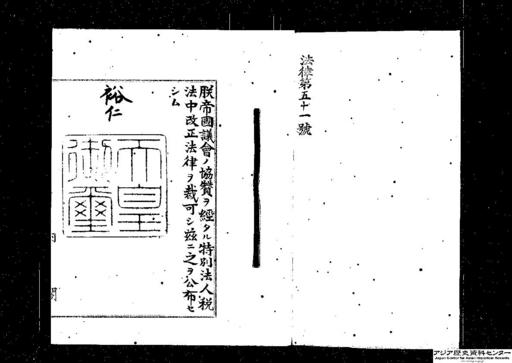 法律第五十一號
朕帝國議會ノ協贊ヲ經タル特別法人税
法中改正法律ヲ裁可シ玆ニ之ヲ公布セ
シム
裕仁
天皇
御璽
アジア歴史資料センター
Japan Center for Asian Historical Records